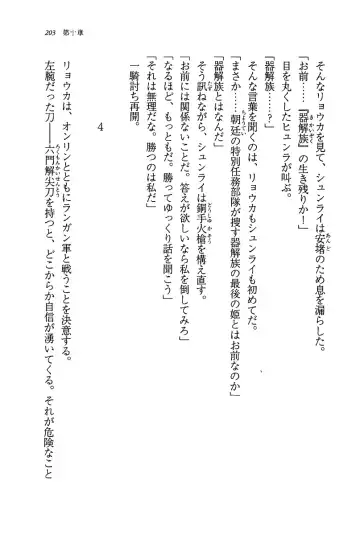 203　第十章
そんなリョウカを見て、シュンライは安堵のため息を漏らした。
「お前……『器解族』の生き残りか！」
目を丸くしたヒュンラが叫ぶ。
「器解族……？」
そんな言葉を聞くのは、リョウカもシュンライも初めてだ。
「まさか……朝廷の特別任務部隊が捜す器解族の最後の姫とはお前なのか」
「器解族とはなんだ」
そう訊ねながら、シュンライは銅手火槍を構え直す。
「お前には関係ないことだ。答えが欲しいなら私を倒してみろ」
「なるほど、もっともだ。勝ってゆっくり話を聞こう」
「それは無理だな。勝つのは私だ」
一騎討ち再開。
4
リョウカは、オンリンとともにランガン軍と戦うことを決意する。
左腕だった刀――六門解尖刀を持つと、どこからか自信が湧いてくる。それが危険なこと